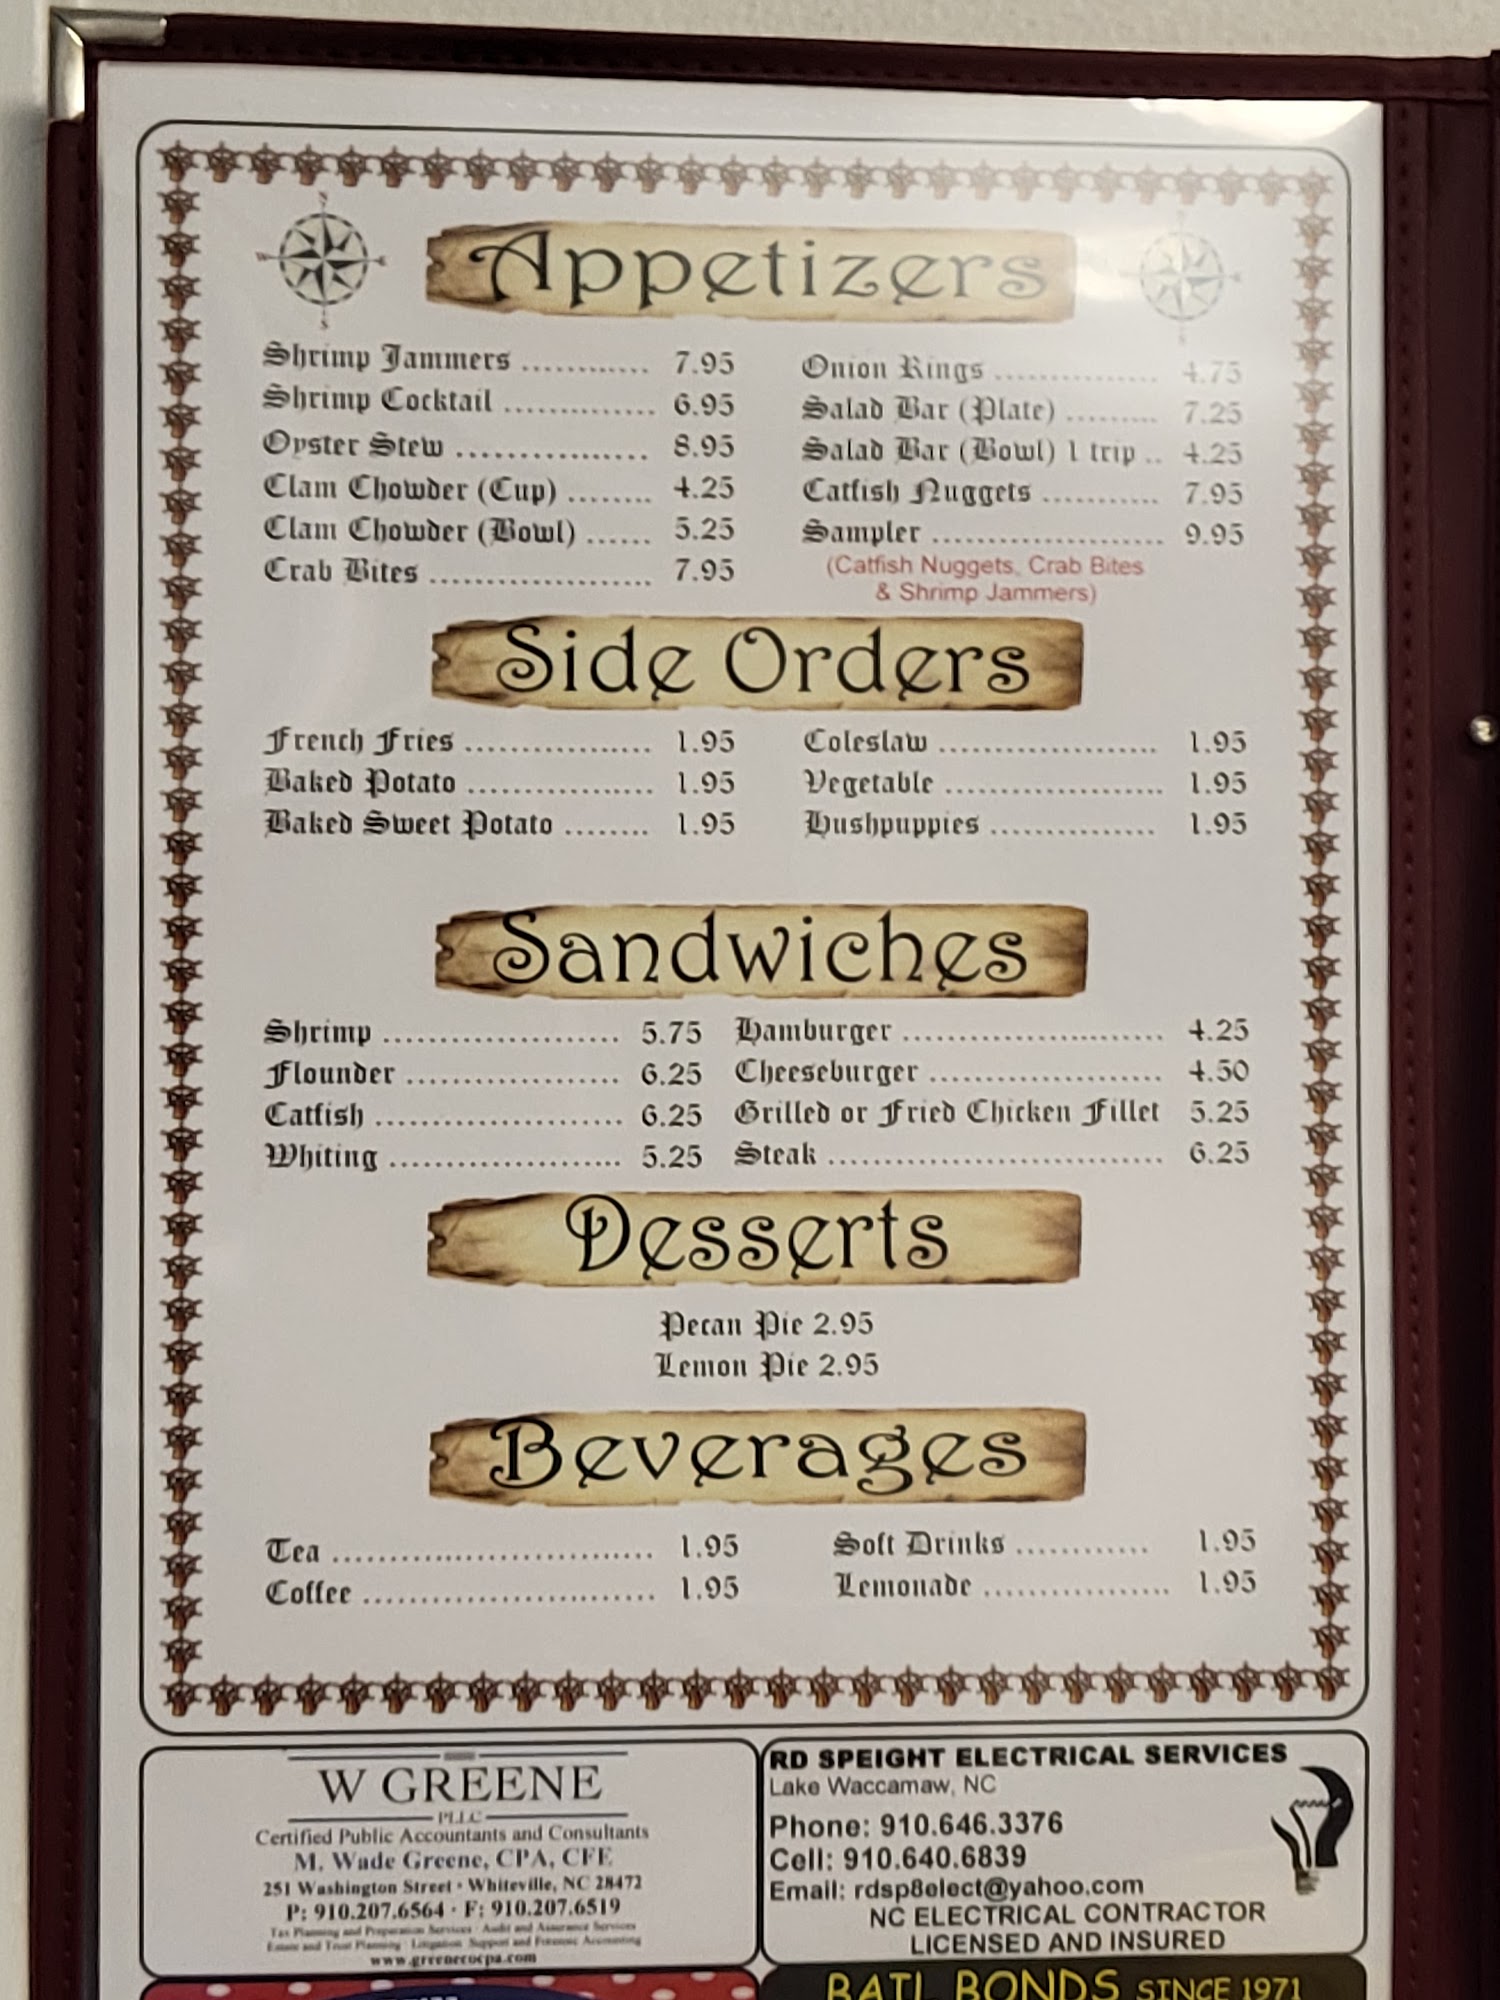 Appetizers
Shrimp Jammers ............ 7.95
Shrimp Cocktail .............. 6.95
Oyster Stew ................. 8.95
Clam Chowder (Cup) ........ 4.25
Clam Chowder (Bowl) ...... 5.25
Crab Bites .................... 7.95
Onion Rings ............... 4.75
Salad Bar (Plate) ......... 7.25
Salad Bar (Bowl) 1 trip .. 4.25
Catfish Nuggets ........... 7.95
Sampler ..................... 9.95
(Catfish Nuggets, Crab Bites
& Shrimp Jammers)
Side Orders
French Fries ................ 1.95
Baked Potato ................ 1.95
Baked Sweet Potato ........ 1.95
Coleslaw .................... 1.95
Vegetable .................... 1.95
Hushpuppies ............... 1.95
Sandwiches
Shrimp ..................... 5.75
Flounder ................... 6.25
Catfish ...................... 6.25
Whiting ..................... 5.25
Hamburger ........................ 4.25
Cheeseburger ..................... 4.50
Grilled or Fried Chicken Fillet 5.25
Steak ............................... 6.25
Desserts
Pecan Pie 2.95
Lemon Pie 2.95
Beverages
Tea ............................ 1.95
Coffee ......................... 1.95
Soft Drinks ............ 1.95
Lemonade ................. 1.95
W GREENE
PLLC
Certified Public Accountants and Consultants
M. Wade Greene, CPA, CFE
251 Washington Street · Whiteville, NC 28472
P: 910.207.6564 · F: 910.207.6519
Tax Planning and Preparation Services · Audit and Assurance Services
Estate and Trust Planning · Litigation Support and Forensic Accounting
www.greenecocpa.com
RD SPEIGHT ELECTRICAL SERVICES
Lake Waccamaw, NC
Phone: 910.646.3376
Cell: 910.640.6839
Email: rdsp8elect@yahoo.com
NC ELECTRICAL CONTRACTOR
LICENSED AND INSURED
BAIL BONDS SINCE 1971